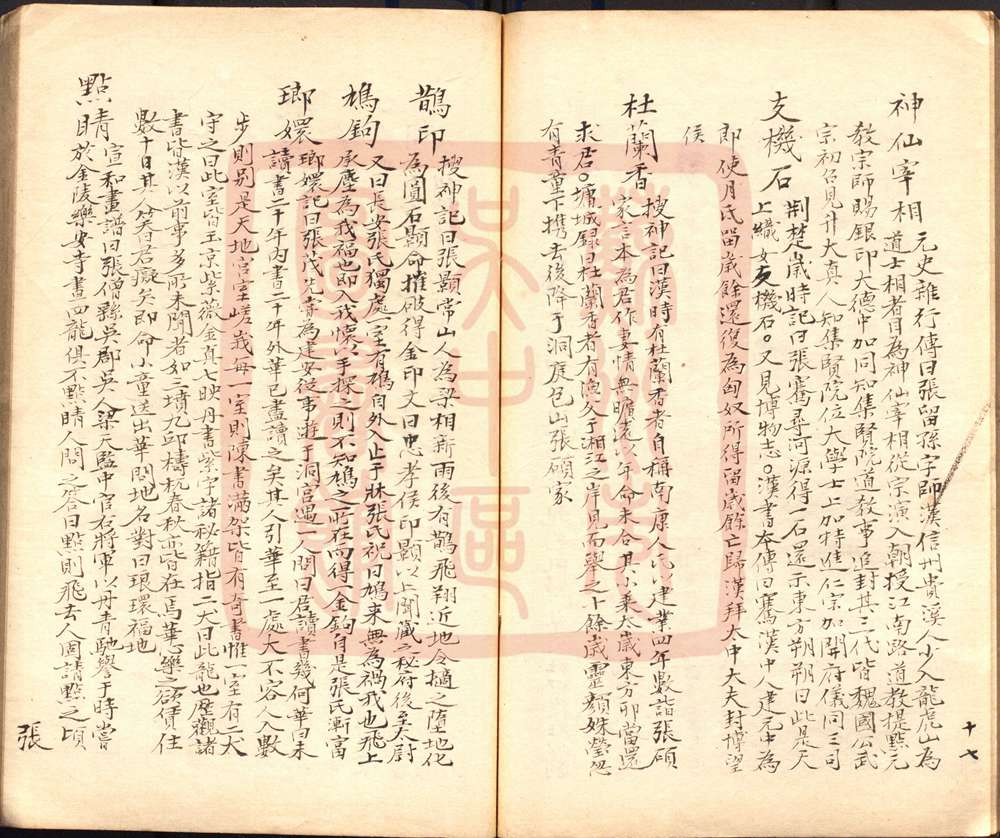 神仙宰相 元史雜行傳曰張留孫字師漢信州貴溪人少入龍虎山為
道士相者目為神仙宰相從宗演入朝授江南路道教提點元
教宗師賜銀印大德中加同知集賢院道教事追封其三代皆魏國公武
宗初召見升大真人知集賢院位大學士上加特進仁宗加開府儀同三司
支機石 荆楚歲時記曰張騫尋河源得一石還示東方朔朔曰此是天
上織女支機石○又見博物志○漢書本傳曰騫漢中人建元中為
郎使月氏留歲餘還復為匈奴所得留歲餘亡歸漢拜太中大夫封博望
侯
杜蘭香 搜神記曰漢時有杜蘭香者自稱南康人氏以建業四年數詣張碩
家言本為君作妻情無曠遠以年命未合其小乖太歲東方卯當還
求君○墉城録曰杜蘭香者有漁父于湘江之岸見而舉之十餘歲靈顏姝瑩忽
有青童下携去後降于洞庭包山張碩家
十七
鵲印 搜神記曰張顥常山人為梁相新雨後有鵲飛翔近地令撾之墮地化
為圓石顥命摧破得金印文曰忠孝侯印顥以上聞藏之秘府後至太尉
鳩鉤 又曰長安張氏獨處一室有鳩自外入止于牀張氏祝曰鳩来無為禍我也飛上
承塵為我福也即入我懷以手探之則不知鳩之所在而得一金鉤自是張氏漸富
瑯嬛 瑯嬛記曰張茂先嘗為建安從事遊于洞宮遇一人問曰君讀書幾何華曰未
讀書二十年內書二十年外華已盡讀之矣其人引華至一處大石容人入數
步則别是天地宮室嵯峩每一室則陳書滿架皆有奇書惟一室有二犬
守之曰此室皆玉京紫薇金真七映丹書紫字諸秘籍指二犬曰此龍也歷觀諸
書皆漢以前事多所未聞者如三墳九邱檮杌春秋亦皆在焉華心樂之欲賃住
數十日其人笑曰君癡矣即命小童送出華問地名對曰琅環福地
點睛 宣和畫譜曰張僧繇吳郡吳人梁天監中官右將軍以丹青馳譽于時嘗
於金陵樂安寺畫四龍俱不點睛人問之答曰點則飛去人固請點之頃
張